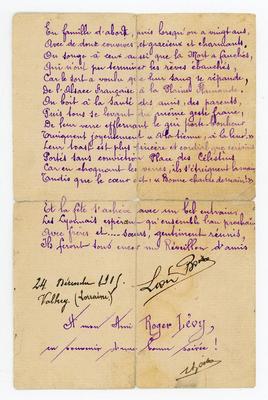 En famille d'abord, puis lorsqu'on a vingt ans,
Avec de doux convives, et gracieux et charmants,
On songe à ceux aussi que la Mort a fauchés,
Qui n'ont pu terminer les rêves ébauchés,
Car le sort a voulu que leur sang se répande,
De l'Alsace Française à la Plaine Flamande.
On boit à la santé des amis, des parents,
Puis tous se levant du même geste franc,
De leur verre effleurant le qui
joyeusement "à la leur"
Leur toast est plus sincère et cordial que certains
Portés sans conviction Place des Célestins
Car en choquant les verres, ils s'étreignent la main
Tandis que le cœur dit: "Bonne chance demain"
Et la fête s'achève avec un bel entrain,
Les Lyonnais espérant qu'ensemble l'an prochain
Avec frères et .... sœurs, gentiment réunis,
Ils feront tous encor un Réveillon d'amis
24 Décembre 1915.
(Lorraine)
Léon
A mon Ami Roger Lévy,
en souvenir d'une bonne soirée!